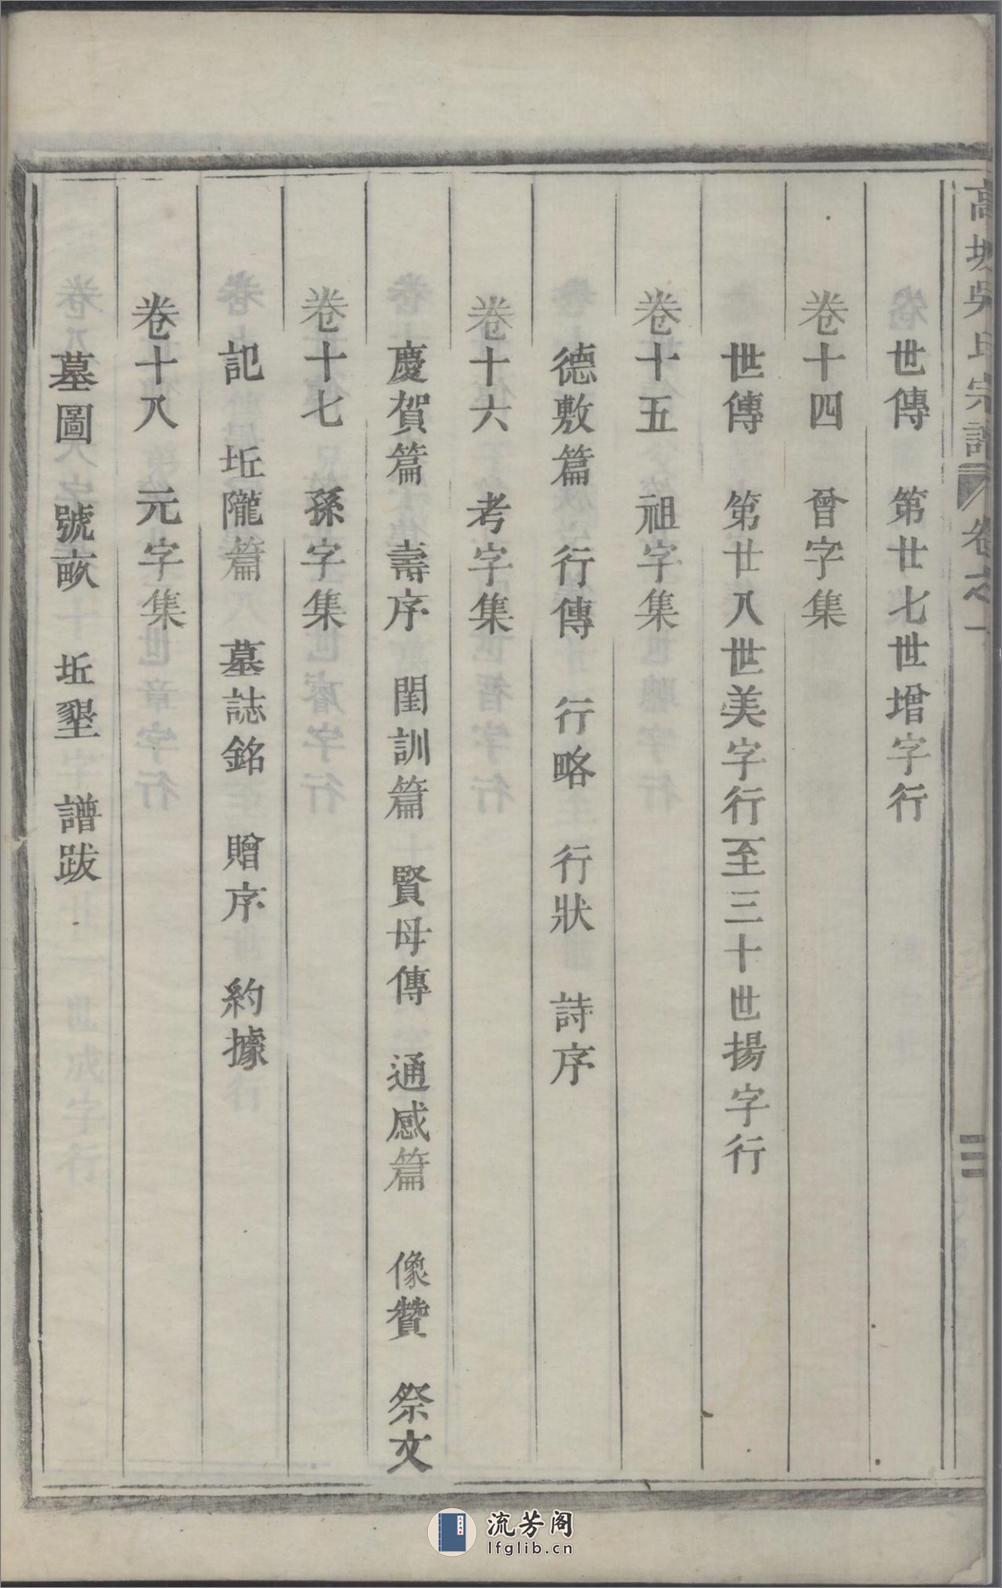 高城吳氏宗譜 卷之一 三
世傳 第廿七世增字行
卷十四 曾字集
世傳 第廿八世美字行至三十世揚字行
卷十五 祖字集
德敷篇 行傳 行略 行狀 詩序
卷十六 考字集
慶賀篇 壽序 閨訓篇 賢母傳 通感篇 像贊 祭文
卷十七 孫字集
記 坵隴篇 墓誌銘 贈序 約據
卷十八 元字集
墓圖 號畝 坵墾 譜跋
流芳阁
lfglib.cn